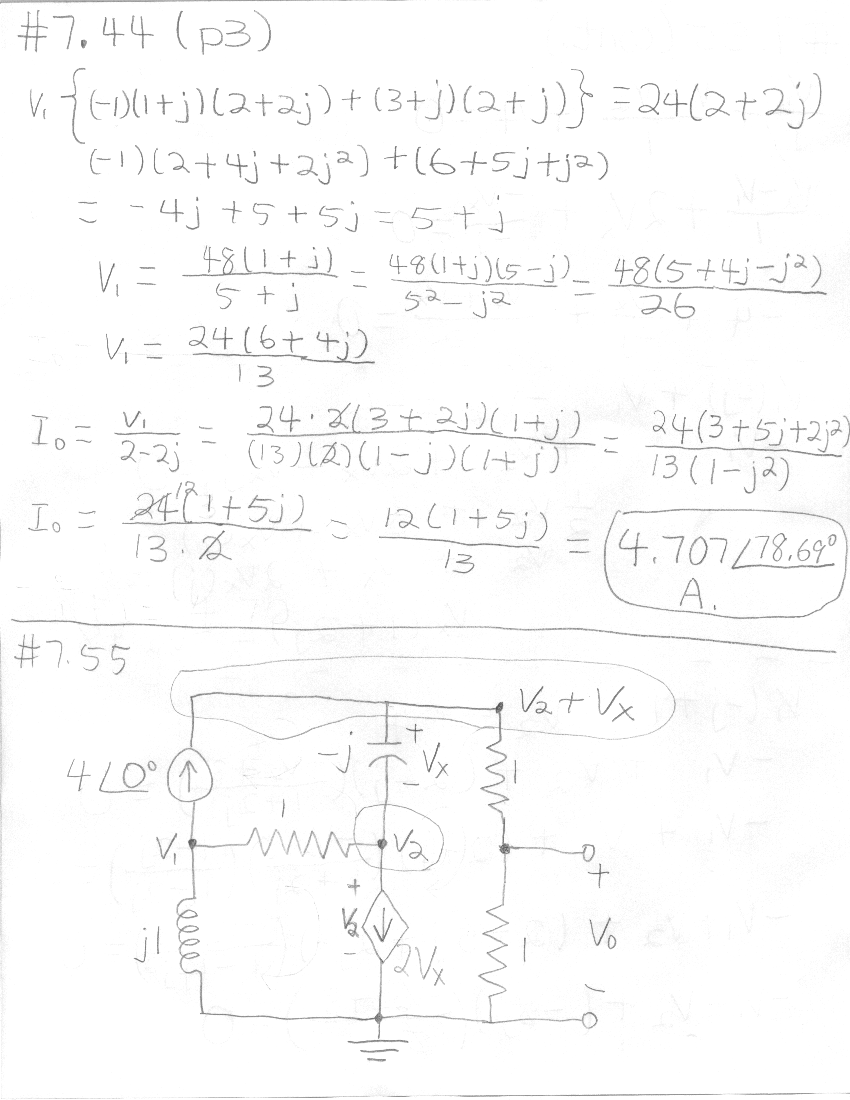 #7.44 (p3)
V₁ {(-1)(1+j)(2+2j) + (3+j)(2+j)} = 24(2+2j)
(-1)(2+4j+2j²) + (6+5j+j²)
= -4j +5 +5j = 5 + j
V₁ = 48(1+j)/(5+j) = 48(1+j)(5-j)/(5²-j²) = 48(5+4j-j²)/26
V₁ = 24(6+4j)/13
I₀ = V₁/(2-2j) = 24·2(3+2j)(1+j)/((13)(2)(1-j)(1+j)) = 24(3+5j+2j²)/(13(1-j²))
I₀ = 24 12(1+5j)/(13·2) = 12(1+5j)/13 = 4.707∠78.69°
A.
#7.55
V₂ + Vx
-j + Vx - 1
4∠0° ↑
1
V₁ V₂
+ V₂ - ↓ 2Vx
j1
1
+ V₀ -